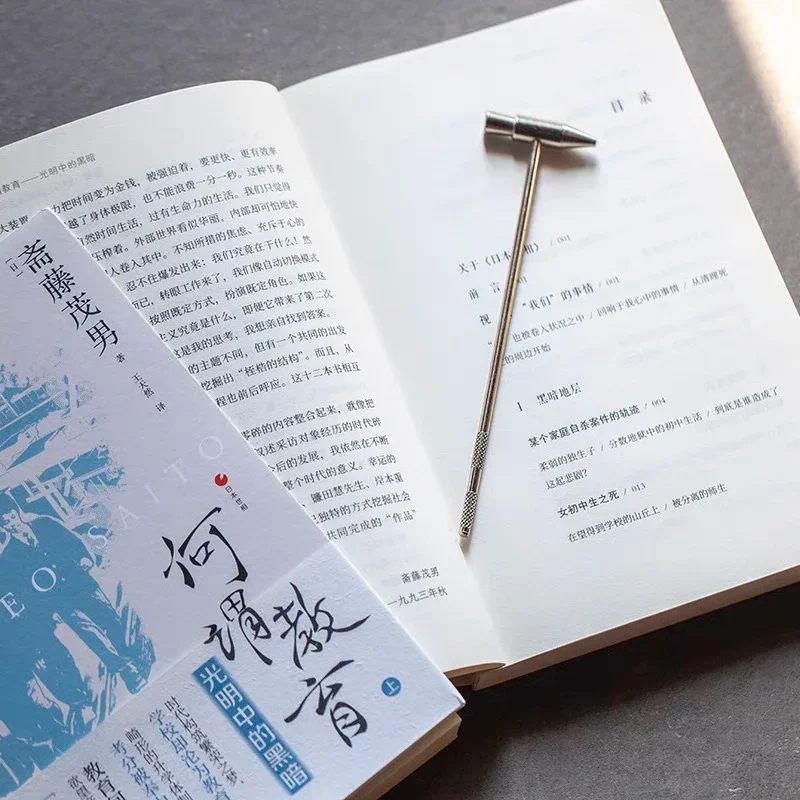 育——光明中的黑暗
力把时间变为金钱，被强迫着，要更快、更有效率
越了身体极限，也不能浪费一分一秒。这种节奏
然时间生活，过有生命力的生活。我们只觉得
压榨着。外部世界看似华丽，内部却可怕地快
人卷入其中。不知所措的焦虑、充斥于心的
忍不住爆发出来：我们究竟在干什么！然
而已，转眼工作来了，我们像自动切换模式
按照既定方式，扮演既定角色。如果这
义究竟是什么，即便它带来了第二次
是我的思考，我想亲自找到答案。
的主题不同，但有一个共同的出发
挖掘出“桎梏的结构”。而且，从
程也前后呼应。这十二本书相互
零碎的内容整合起来，就像把
叙述采访对象经历的时代碎
今后的发展，我依然在不断
整个时代的意义。幸运的
镰田慧先生、岸本重
己独特的方式挖掘社会
共同完成的“作品”
斋藤茂男
一九九三年秋
目录
关于《日本
相》/ 001
前言
001
视
“我们”的事情
也被卷入状况之中 / 回响于我心中的事情 / 从清理死
的周边开始
I 黑暗地层
某个家庭自杀案件的轨迹 / 004
柔弱的独生子 / 分数地狱中的初中生活 / 到底是谁造成了
这起悲剧？
女初中生之死 / 013
在望得到学校的山丘上 / 被分离的师生
[日]
斋藤茂男
著
王天然 译
EO SAITO
日本世相
何谓教育
上
光明中的黑暗
时代构筑繁荣之梦，
学校却沦为教育
畸形的升学体制